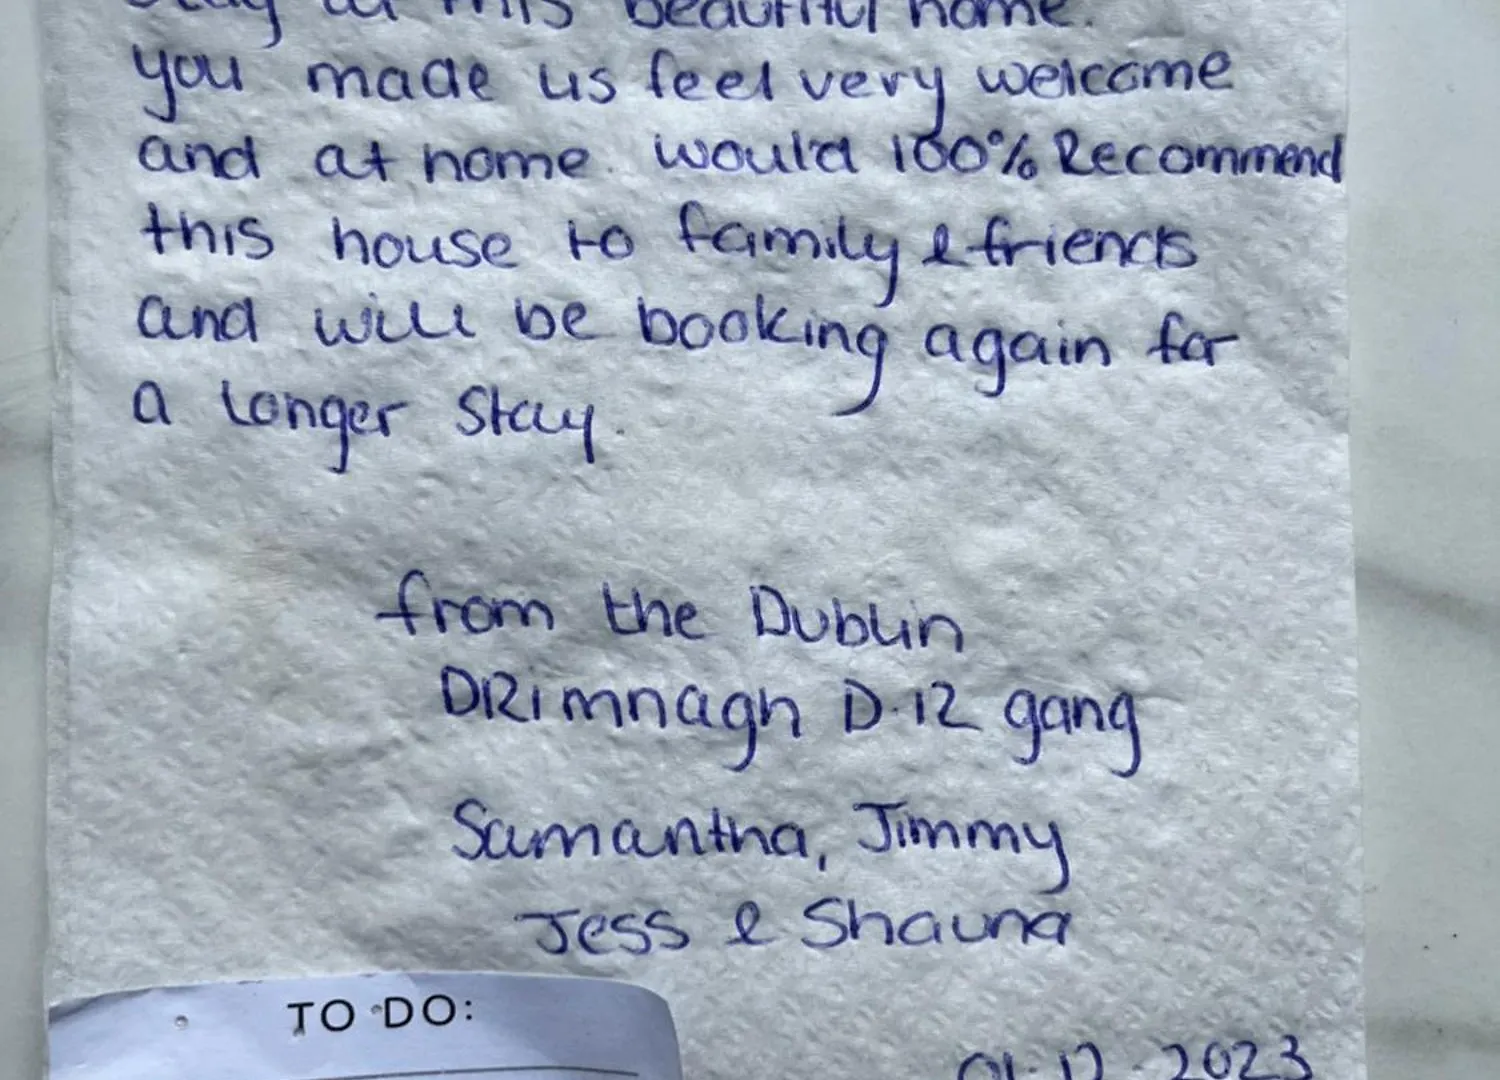 stay at this beautiful home.
you made us feel very welcome
and at home. would 100% Recommend
this house to family & friends
and will be booking again for
a longer stay.
from the Dublin
DRimnagh D.12 gang
Samantha, Jimmy
Jess & Shauna
TO DO:
01.12.2023